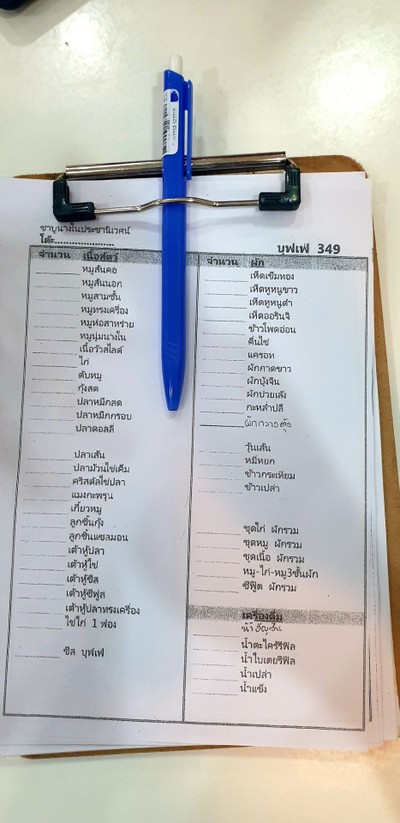 ชาบูนางในประชานิเวศน์
โต๊ะ.....................
บุฟเฟ่ 349
จำนวน เนื้อสัตว์
หมูสันคอ
หมูสันนอก
หมูสามชั้น
หมูทรงเครื่อง
หมูห่อสาหร่าย
หมูนุ่มนางใน
เนื้อวัวสไลด์
ไก่
ตับหมู
กุ้งสด
ปลาหมึกสด
ปลาหมึกกรอบ
ปลาดอลลี่
ปลาเส้น
ปลาม้วนไข่เค็ม
คริสตัลไข่ปลา
แมงกะพรุน
เกี๊ยวหมู
ลูกชิ้นกุ้ง
ลูกชิ้นแซลมอน
เต้าหู้ปลา
เต้าหู้ไข่
เต้าหู้ชีส
เต้าหู้ซีฟู้ส
เต้าหู้ปลาทรงเครื่อง
ไข่ไก่ 1 ฟอง
ชีส บุฟเฟ่
จำนวน ผัก
เห็ดเข็มทอง
เห็ดหูหนูขาว
เห็ดหูหนูดำ
เห็ดออรินจิ
ข้าวโพดอ่อน
คื่นไช่
แครอท
ผักกาดขาว
ผักบุ้งจีน
ผักปวยเล้ง
กะหล่ำปลี
ผักกวางตุ้ง
วุ้นเส้น
หมี่หยก
ข้าวกระเทียม
ข้าวเปล่า
ชุดไก่ ผักรวม
ชุดหมู ผักรวม
ชุดเนื้อ ผักรวม
หมู-ไก่-หมู3ชั้นผัก
ซีฟู๊ด ผักรวม
เครื่องดื่ม
น้ำอัญชัน
น้ำตะไคร้รีฟิล
น้ำใบเตยรีฟิล
น้ำเปล่า
น้ำแข็ง